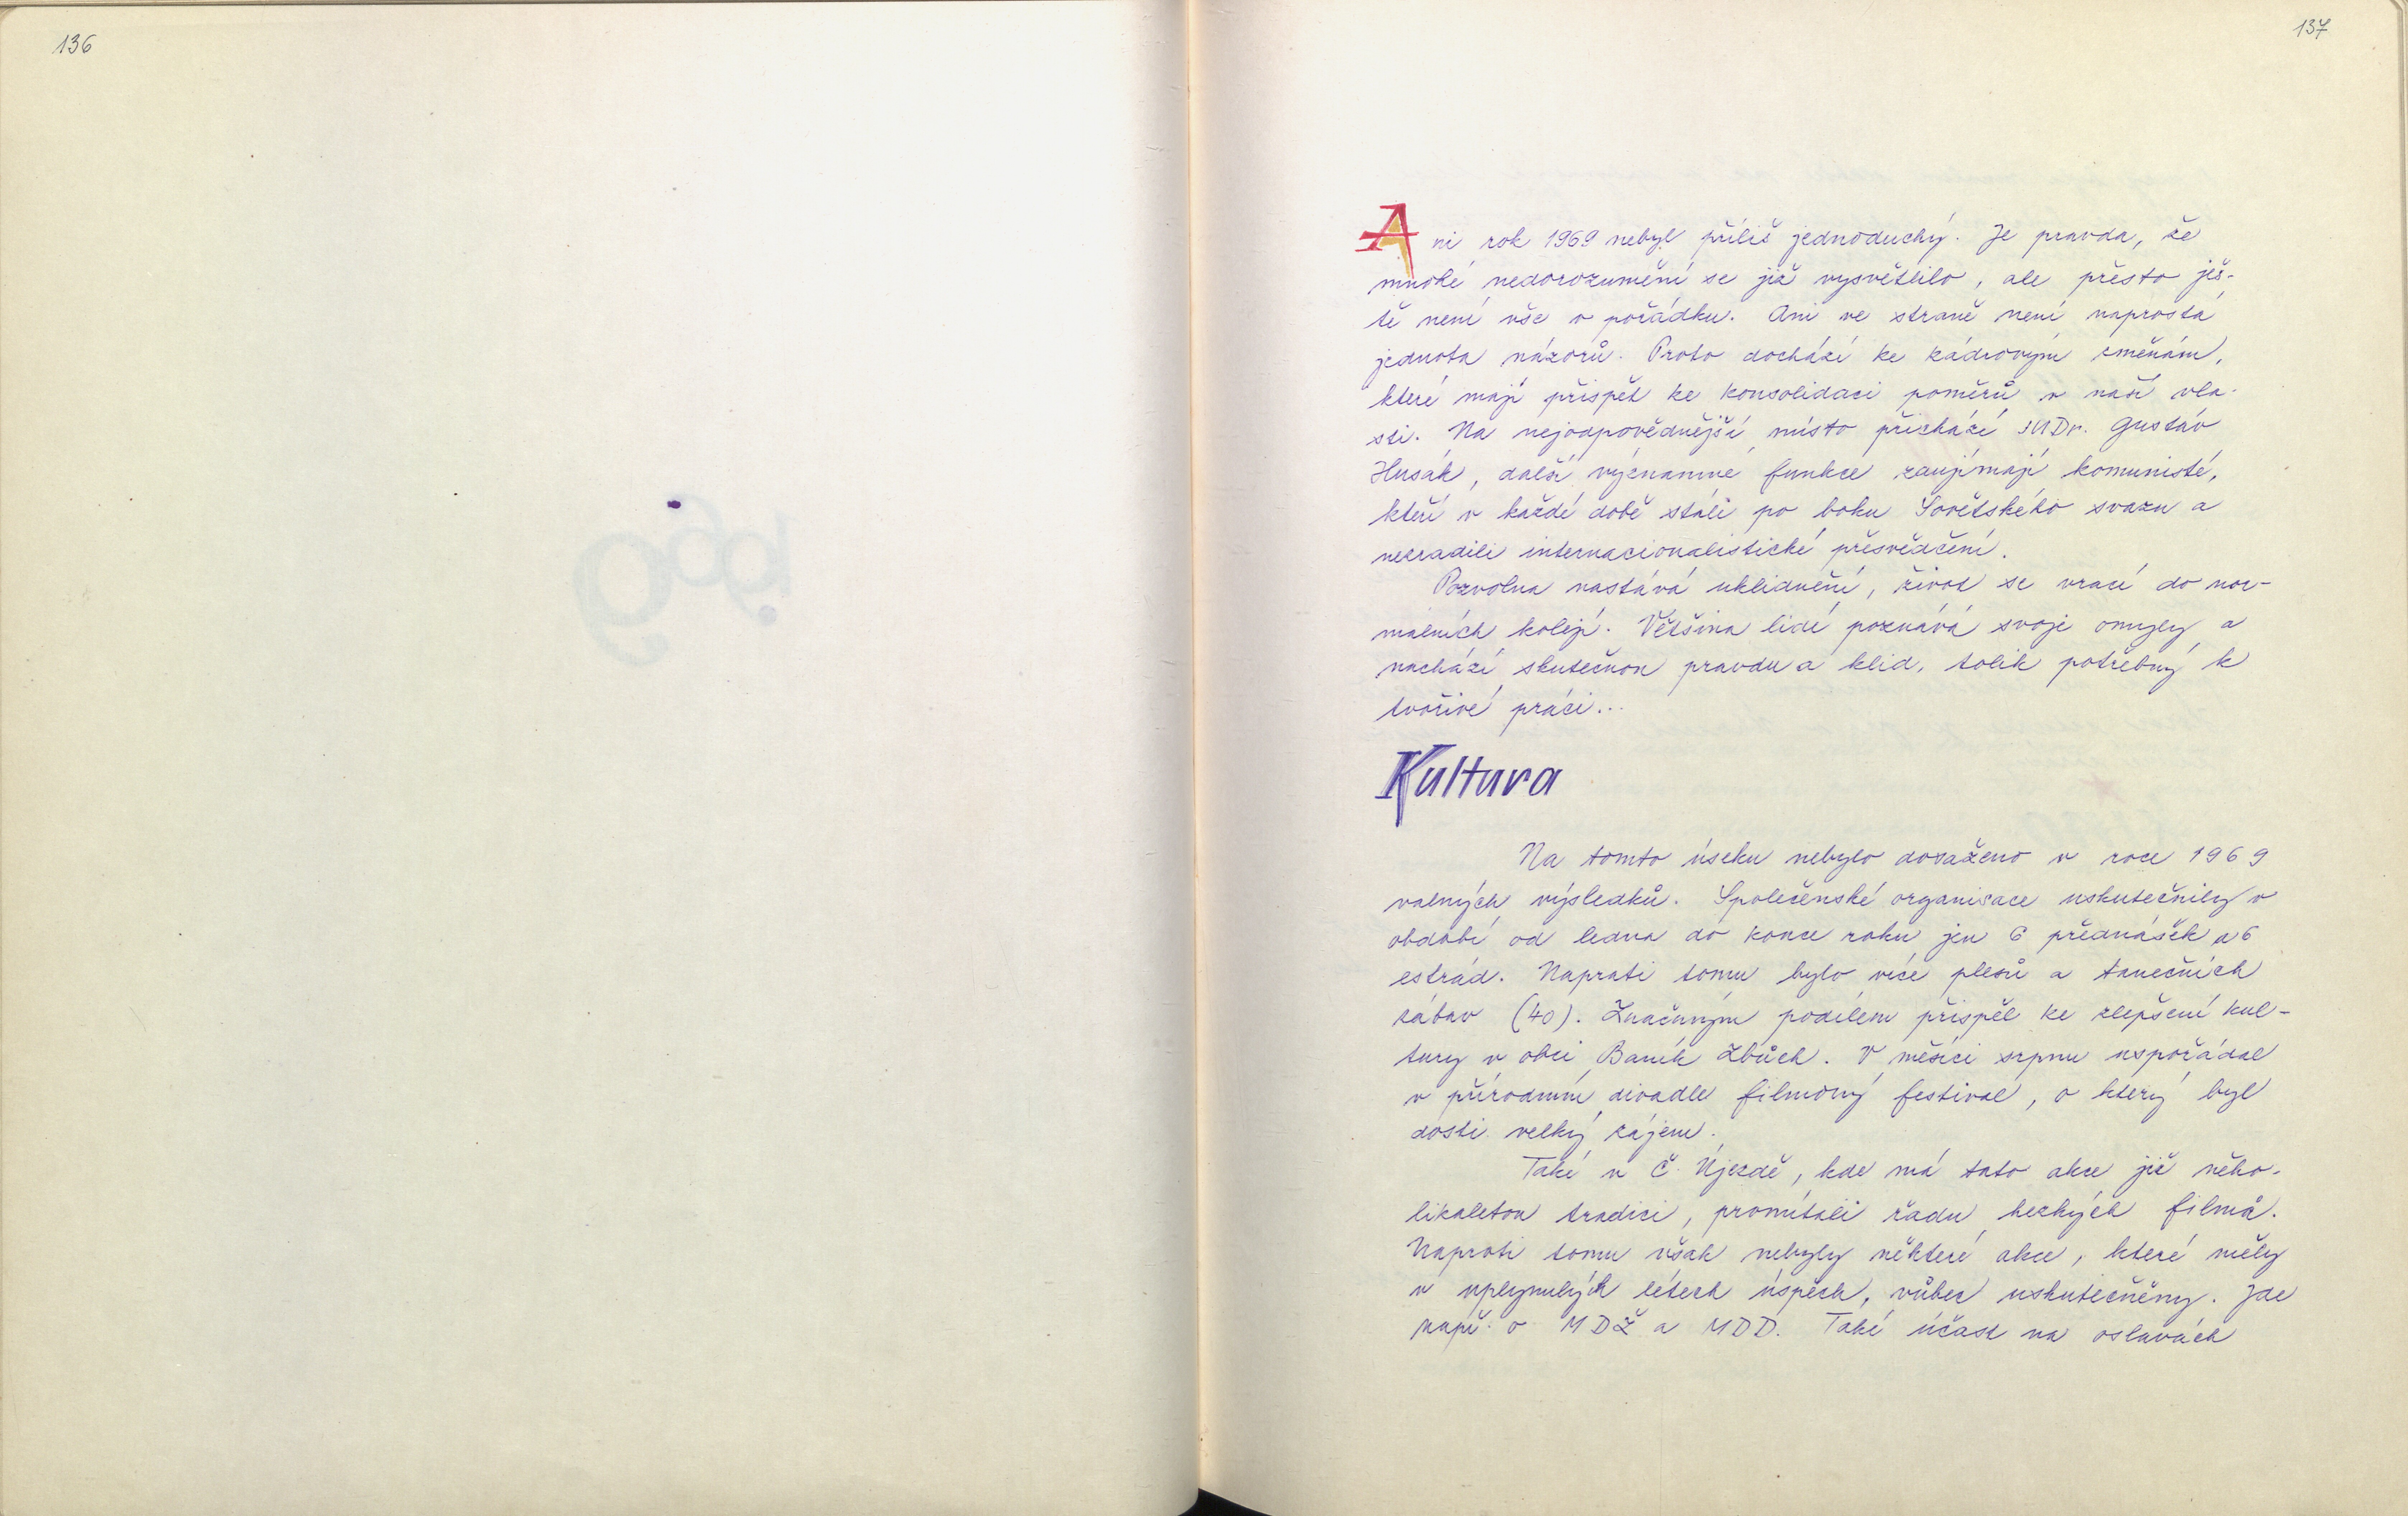 136
137
Ani rok 1969 nebyl příliš jednoduchý. Je pravda, že
mnohé nedorozumění se již vysvětlilo, ale přesto ješ-
tě není vše v pořádku. Ani ve straně není naprostá
jednota názorů. Proto dochází ke kádrovým změnám,
které mají přispět ke konsolidaci poměrů v naší vla-
sti. Na nejodpovědnější místo přichází JUDr. Gustáv
Husák, další významné funkce zaujímají komunisté,
kteří v každé době stáli po boku Sovětského svazu a
nezradili internacionalistické přesvědčení.
Pozvolna nastává uklidnění, život se vrací do nor-
málních kolejí. Většina lidí poznává svoje omyly a
nachází skutečnou pravdu a klid, tolik potřebný k
tvořivé práci...
Kultura
Na tomto úseku nebylo dosaženo v roce 1969
valných výsledků. Společenské organisace uskutečnily v
období od ledna do konce roku jen 6 přednášek a 6
estrád. Naproti tomu bylo více plesů a tanečních
zábav (40). Značným podílem přispěl ke zlepšení kul-
tury v obci Baník Zbůch. V měsíci srpnu uspořádal
v přírodním divadle filmový festival, o který byl
dosti velký zájem.
Také v Č. Újezdě, kde má tato akce již něko-
likaletou tradici, promítali řadu hezkých filmů.
Naproti tomu však nebyly některé akce, které měly
v uplynulých létech úspěch, vůbec uskutečněny. Jde
např. o MDŽ a MDD. Také účast na oslavách